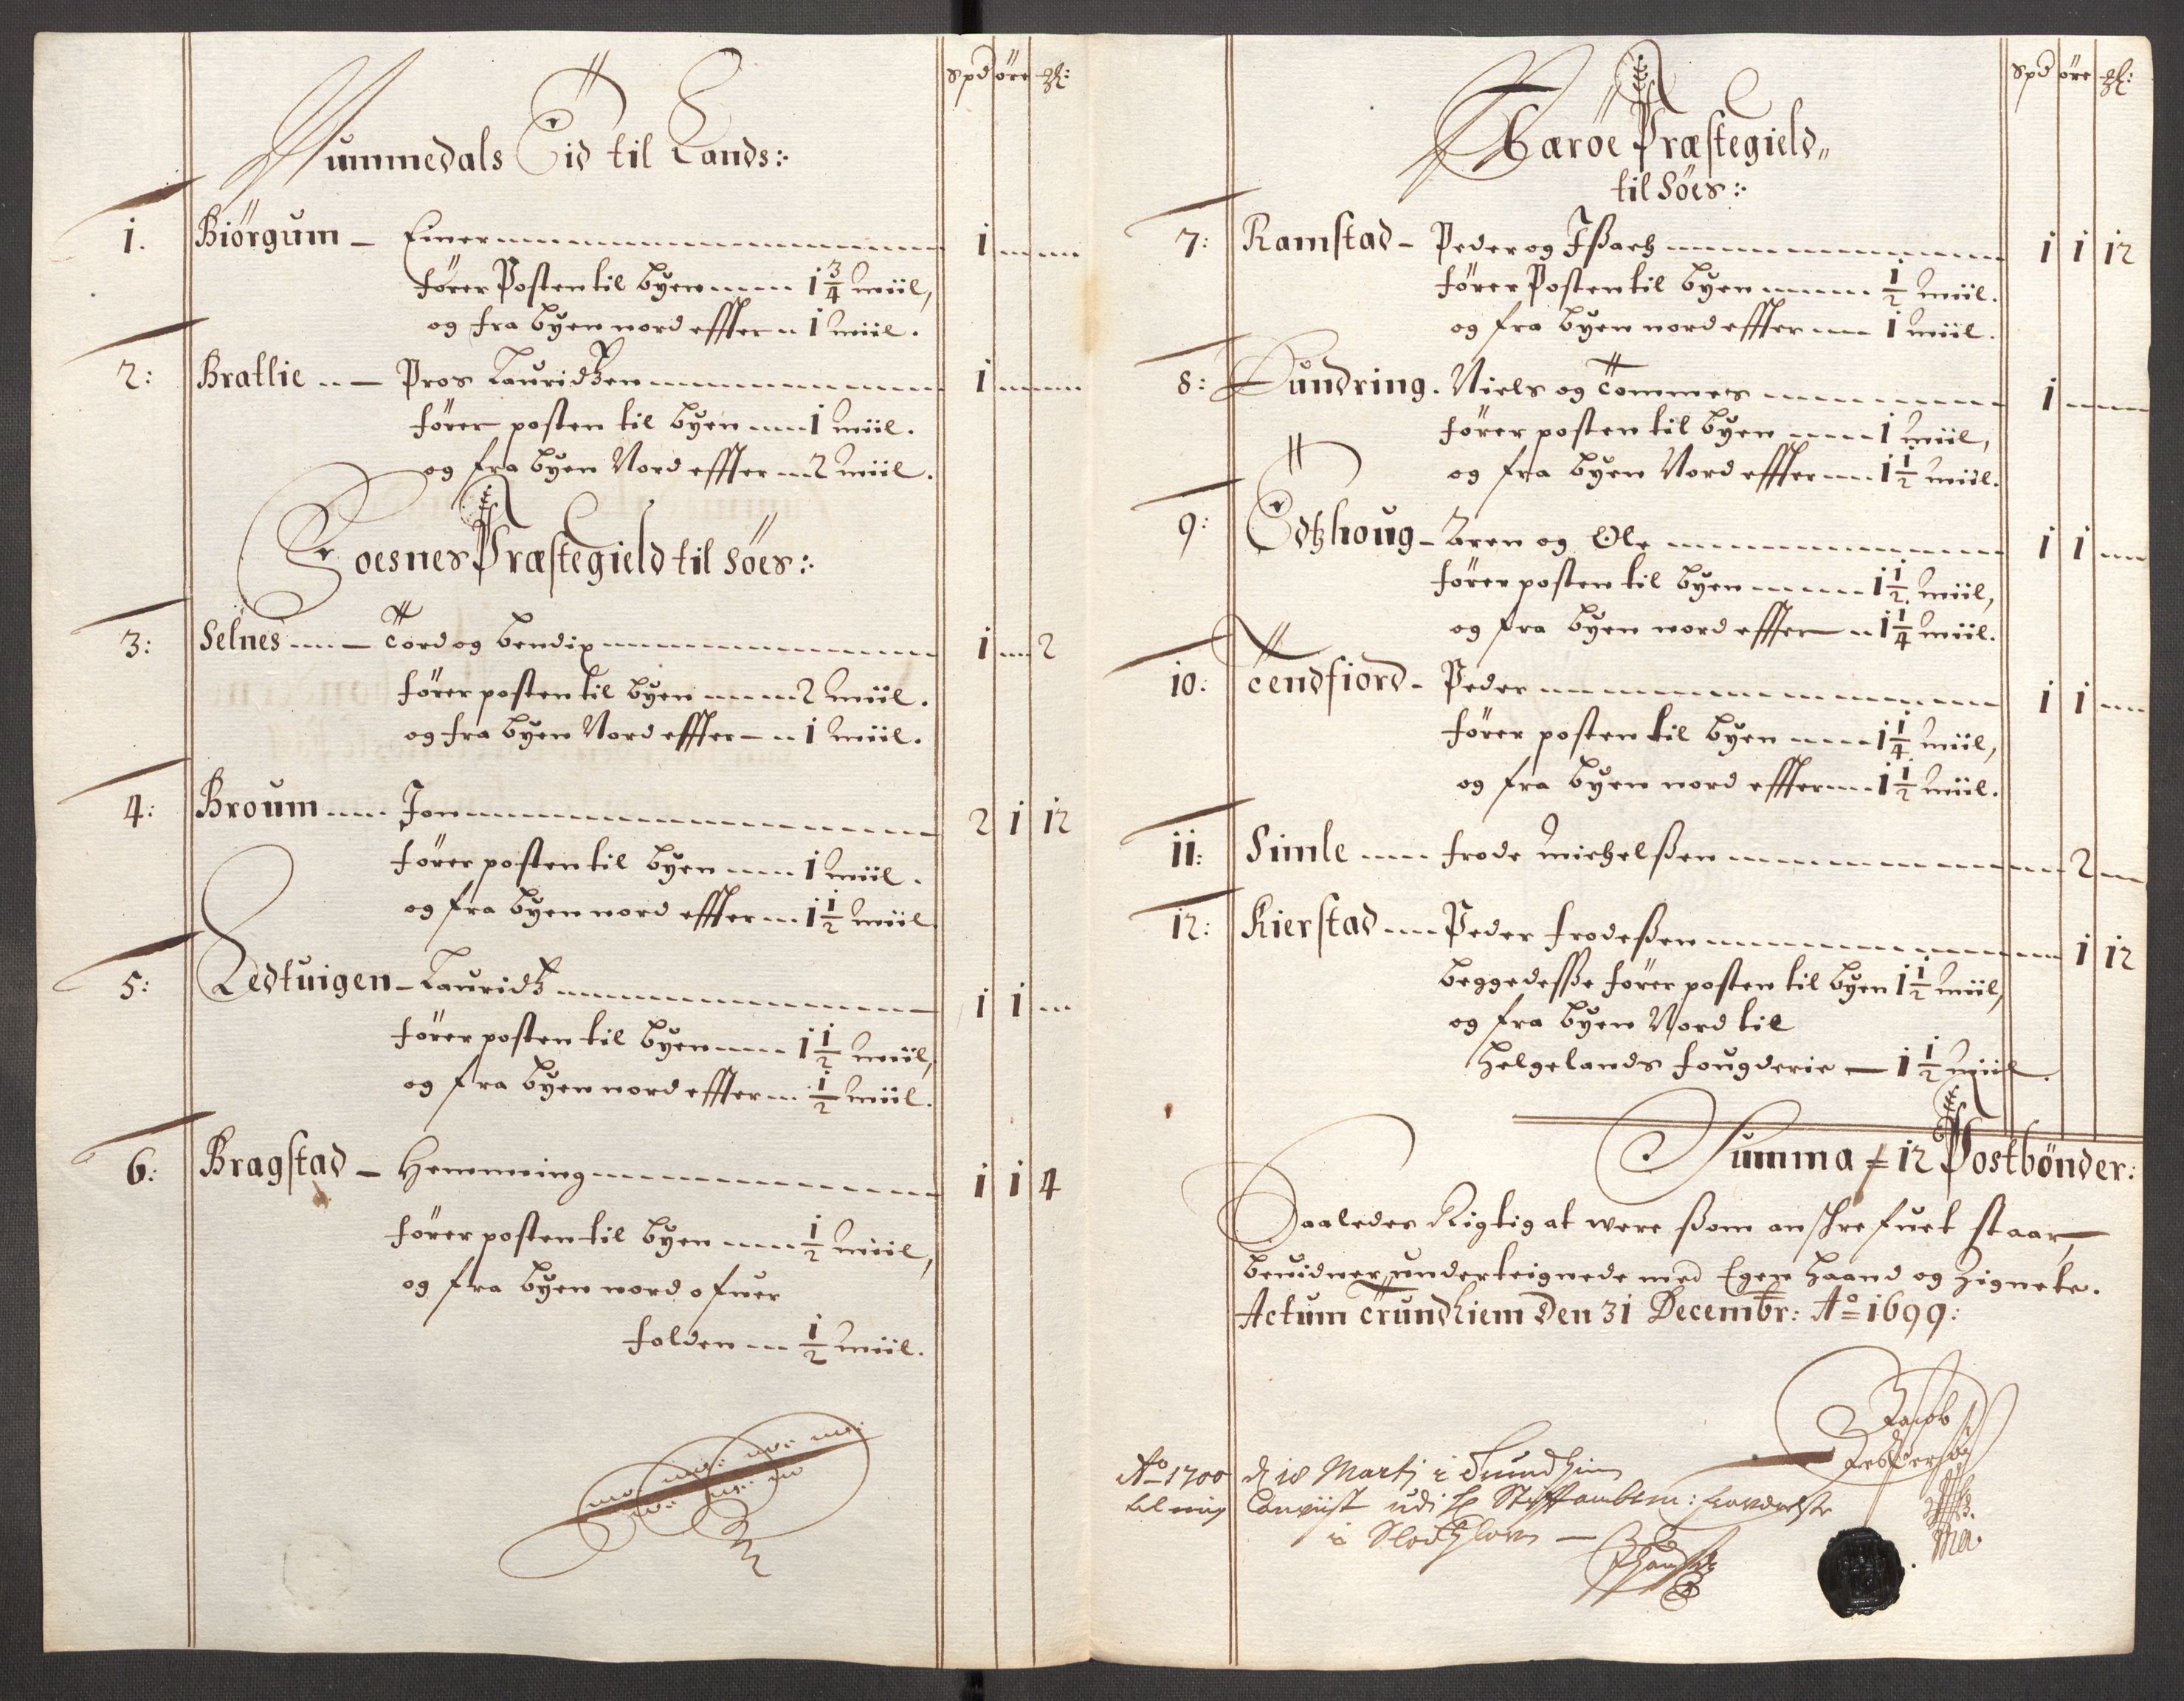 Spd öre ₰:
Nummedals Eid til Lands:
1. Biörgum – Einer 1
fører Posten til Byen 1 3/4 miil,
og fra byen nord effter 1 miil.
2: Bratlie – Pros Lauridtzen 1
fører posten til byen 1 miil.
og fra byen Nord effter 2 miil.
Foesnes Præstegield til Söes:
3: Selnes – Tord og bendix 1 2
fører posten til byen 2 miil.
og fra byen Nord effter 1 miil.
4: Broum Jon 2 1 12
fører posten til byen 1 miil.
og fra byen nord effter 1 1/2 miil
5: Ledtuigen – Lauridtz 1 1
fører posten til byen 1 1/2 miil,
og fra byen nord effter 1/2 miil.
6: Bragstad – Hemming 1 1 4
fører posten til byen 1/2 miil,
og fra byen nord ofuer
folden 1/2 miil.
Spd öre ₰:
Næröe Præstegield
til Söes:
7: Ramstad – Peder og Issach 1 1 12
fører Posten til byen 1/2 miil.
og fra byen nord effter 1 miil.
8: Dundring. Niels og Tommes 1
fører posten til byen 1 miil,
og fra byen Nord effter 1 1/2 miil.
9: Edtzhoug – Bren og Ole 1 1
fører posten til byen 1 1/2 miil,
og fra byen nord effter 1 1/4 miil.
10: Tendfiord – Peder 1 1
fører posten til byen 1 1/4 miil,
og fra byen nord effter 1 1/2 miil.
11: Simle frode michelßen 2
12: Kierstad Peder frodeßen 1 12
beggedesse fører posten til byen 1 1/2 miil,
og fra byen Nord til
Helgelands fougderie – 1 1/2 miil.
Summa 12 Postbönder:
Saaledes Rigtig at were ßom anschrefuet staar,
beuidner underteignede med Egen haand og Zignete.
Actum Trundhiem Den 31 Decembr: Ao 1699:
Jacob
Ao 1700 d 18 Martj i Trundhim